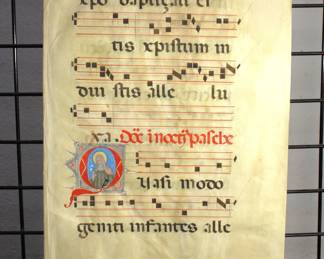 xpo baptizati et
tis xpistum in
dui stis alle lu
ya. Dõe i noctꝭ pasche
Uasi modo
geniti infantes alle